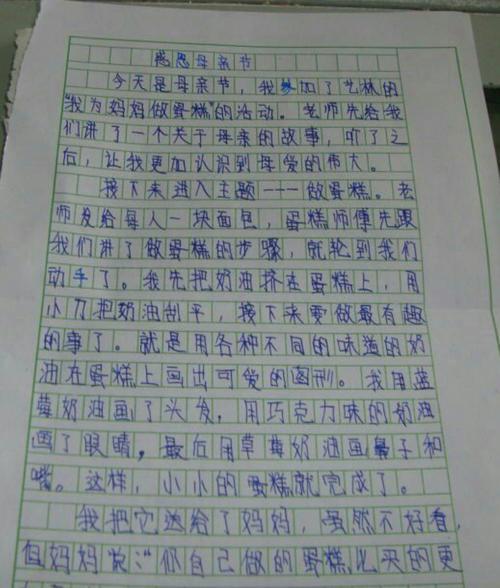 感恩母亲节
今天是母亲节，我参加了艺林的
“我为妈妈做蛋糕”的活动。老师先给我
们讲了一个关于母亲的故事，听了之
后，让我更加认识到母爱的伟大。
接下来进入主题——做蛋糕。老
师发给每人一块面包，蛋糕师傅先跟
我们讲了做蛋糕的步骤，就轮到我们
动手了。我先把奶油挤在蛋糕上，用
小刀把奶油刮平，接下来要做最有趣
的事了。就是用各种不同的味道的奶
油在蛋糕上画出可爱的图形。我用蓝
莓奶油画了头发，用巧克力味的奶油
画了眼睛，最后用草莓奶油画鼻子和
嘴。这样，小小的蛋糕就完成了。
我把它送给了妈妈，虽然不好看，
但妈妈说：“你自己做的蛋糕比买的更